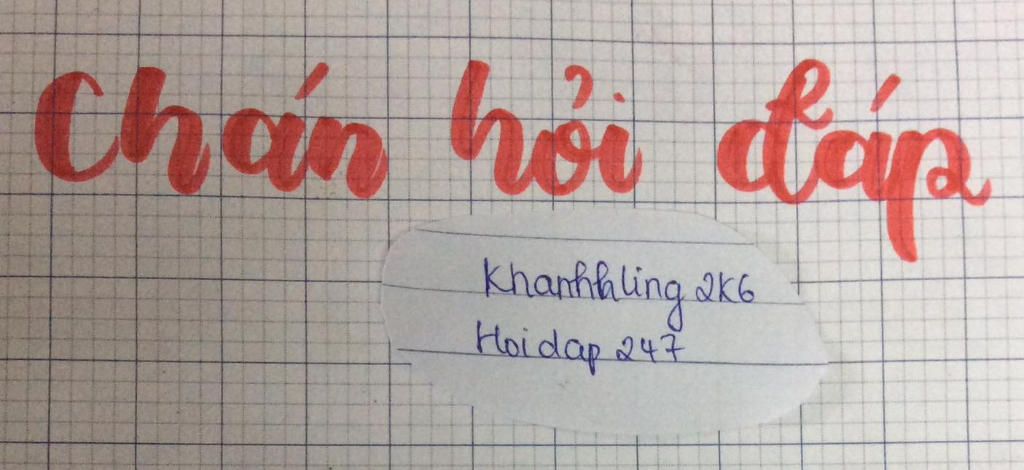 Chán hỏi đáp
Khanhhling 2K6
Hoidap 247